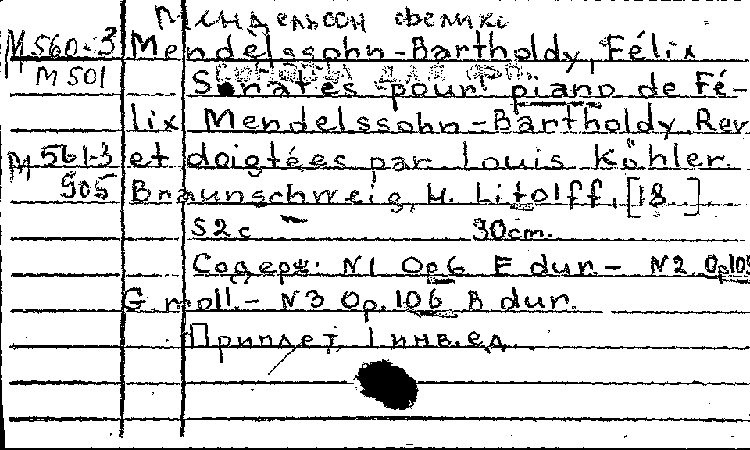 Мендельсон Феликс
М 560-3 Mendelssohn-Bartholdy, Félix
М 501 Sonates pour piano de Fé-
lix Mendelssohn-Bartholdy Rev
М 561-3 et doigtées par Louis Köhler.
905 Braunschweig, H. Litolff, [18 ]
52 c 30 cm.
Содерж: N1 Op6 E dur - N2 Op105
G moll. - N3 Op. 106 B dur.
Приплет 1 инв. ед.